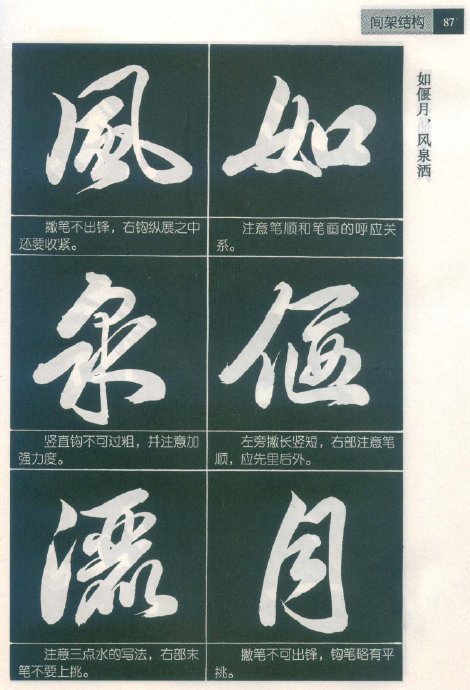 间架结构 87
如偃月，风泉洒
風
撇笔不出锋，右钩纵展之中
还要收紧。
如
注意笔顺和笔画的呼应关
系。
泉
竖直钩不可过粗，并注意加
强力度。
偃
左旁撇长竖短，右部注意笔
顺，应先里后外。
灑
注意三点水的写法，右部末
笔不要上挑。
月
撇笔不可出锋，钩笔略有平
挑。